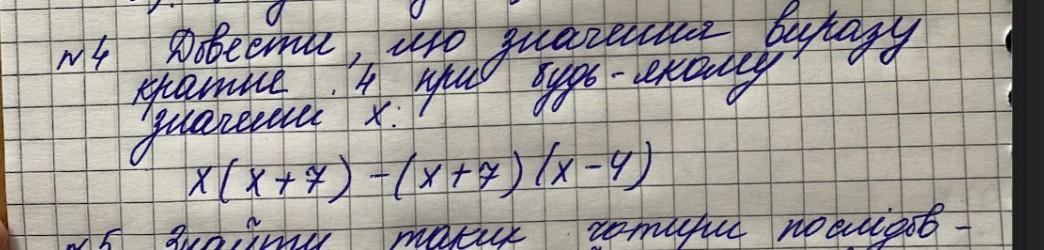 №4 Довести, що значення виразу
кратне 4 при будь-якому
значенні x:
x(x+7)-(x+7)(x-4)
№5 Знайти таких чотири послідов-